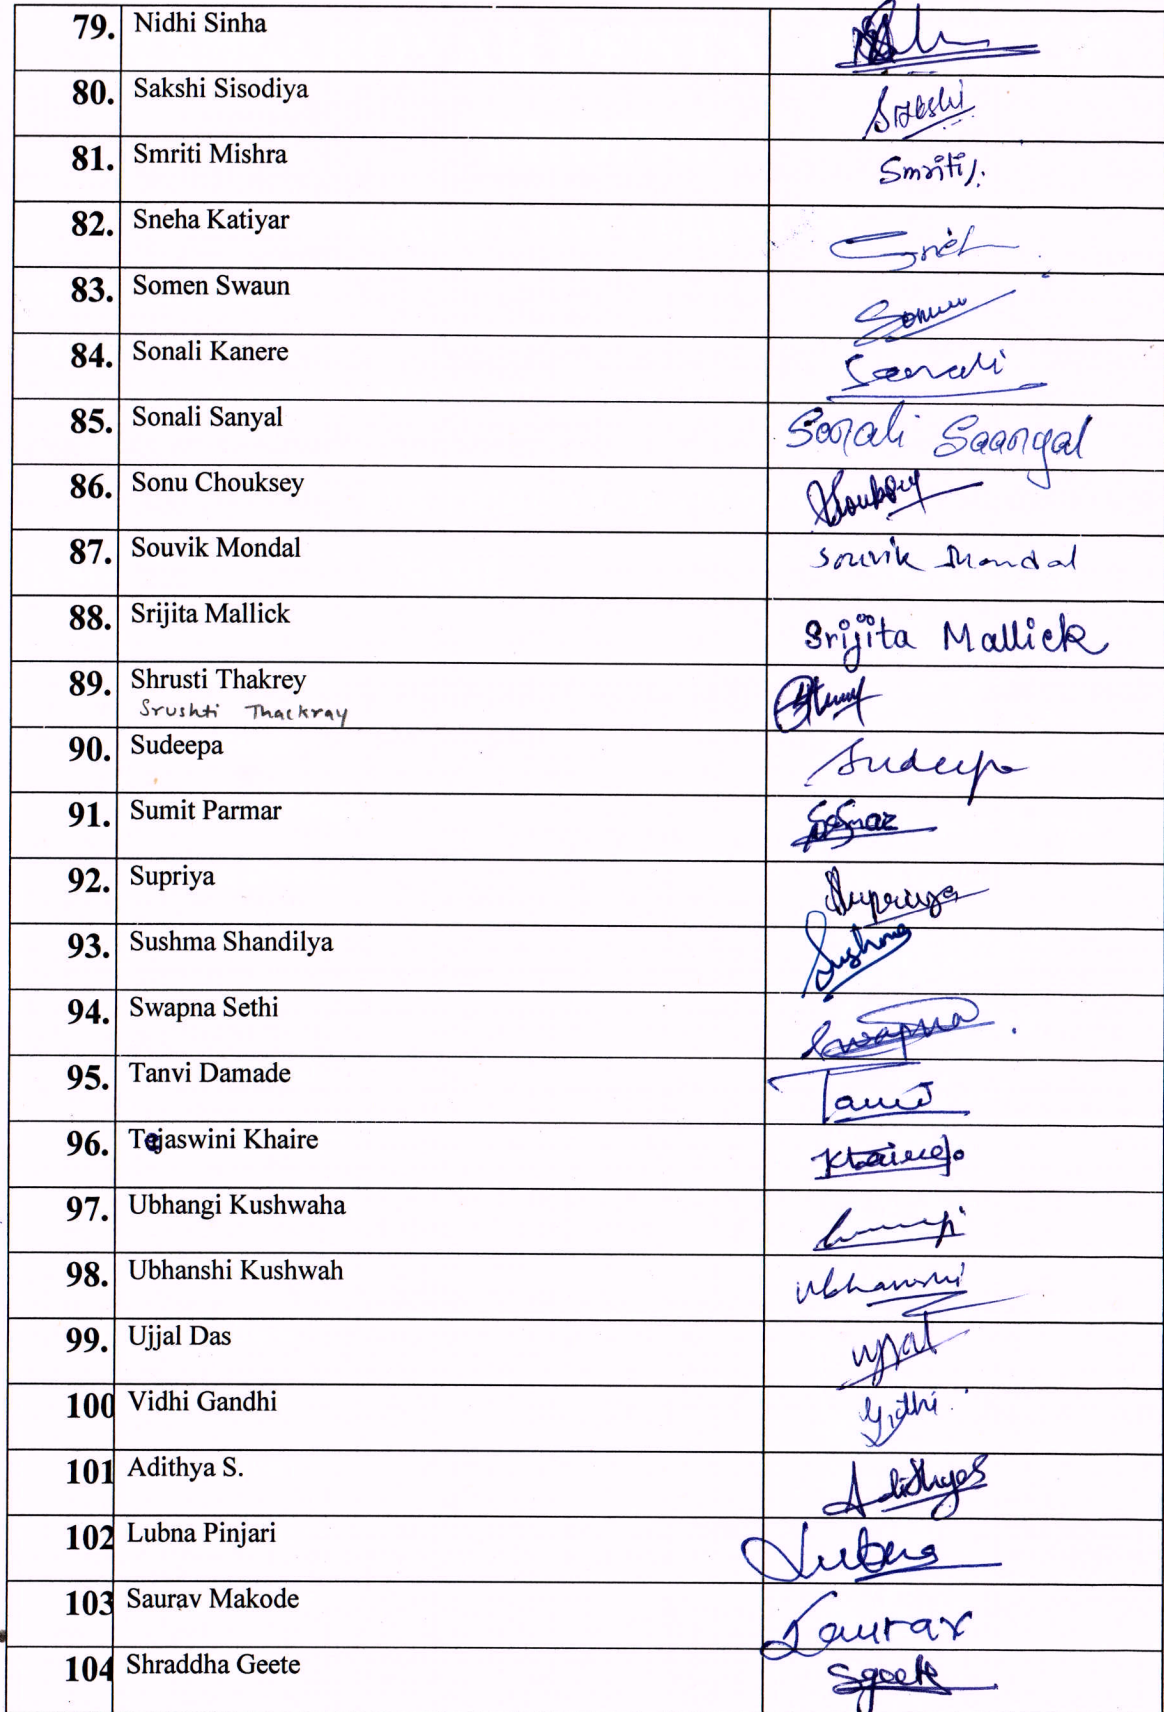 79. Nidhi Sinha
80. Sakshi Sisodiya Sakshi
81. Smriti Mishra Smriti
82. Sneha Katiyar Sneh
83. Somen Swaun Somen
84. Sonali Kanere Sonali
85. Sonali Sanyal Sonali Saanyal
86. Sonu Chouksey Chouksey
87. Souvik Mondal Souvik Mondal
88. Srijita Mallick Srijita Mallick
89. Shrusti Thakrey
Srushti Thackray
90. Sudeepa Sudeepa
91. Sumit Parmar
92. Supriya Supriya
93. Sushma Shandilya Sushma
94. Swapna Sethi Swapna
95. Tanvi Damade Tanvi
96. Tejaswini Khaire
97. Ubhangi Kushwaha
98. Ubhanshi Kushwah Ubhanshi
99. Ujjal Das Ujjal
100 Vidhi Gandhi Vidhi
101 Adithya S. Adithya S
102 Lubna Pinjari Lubna
103 Saurav Makode Saurav
104 Shraddha Geete Sgeete